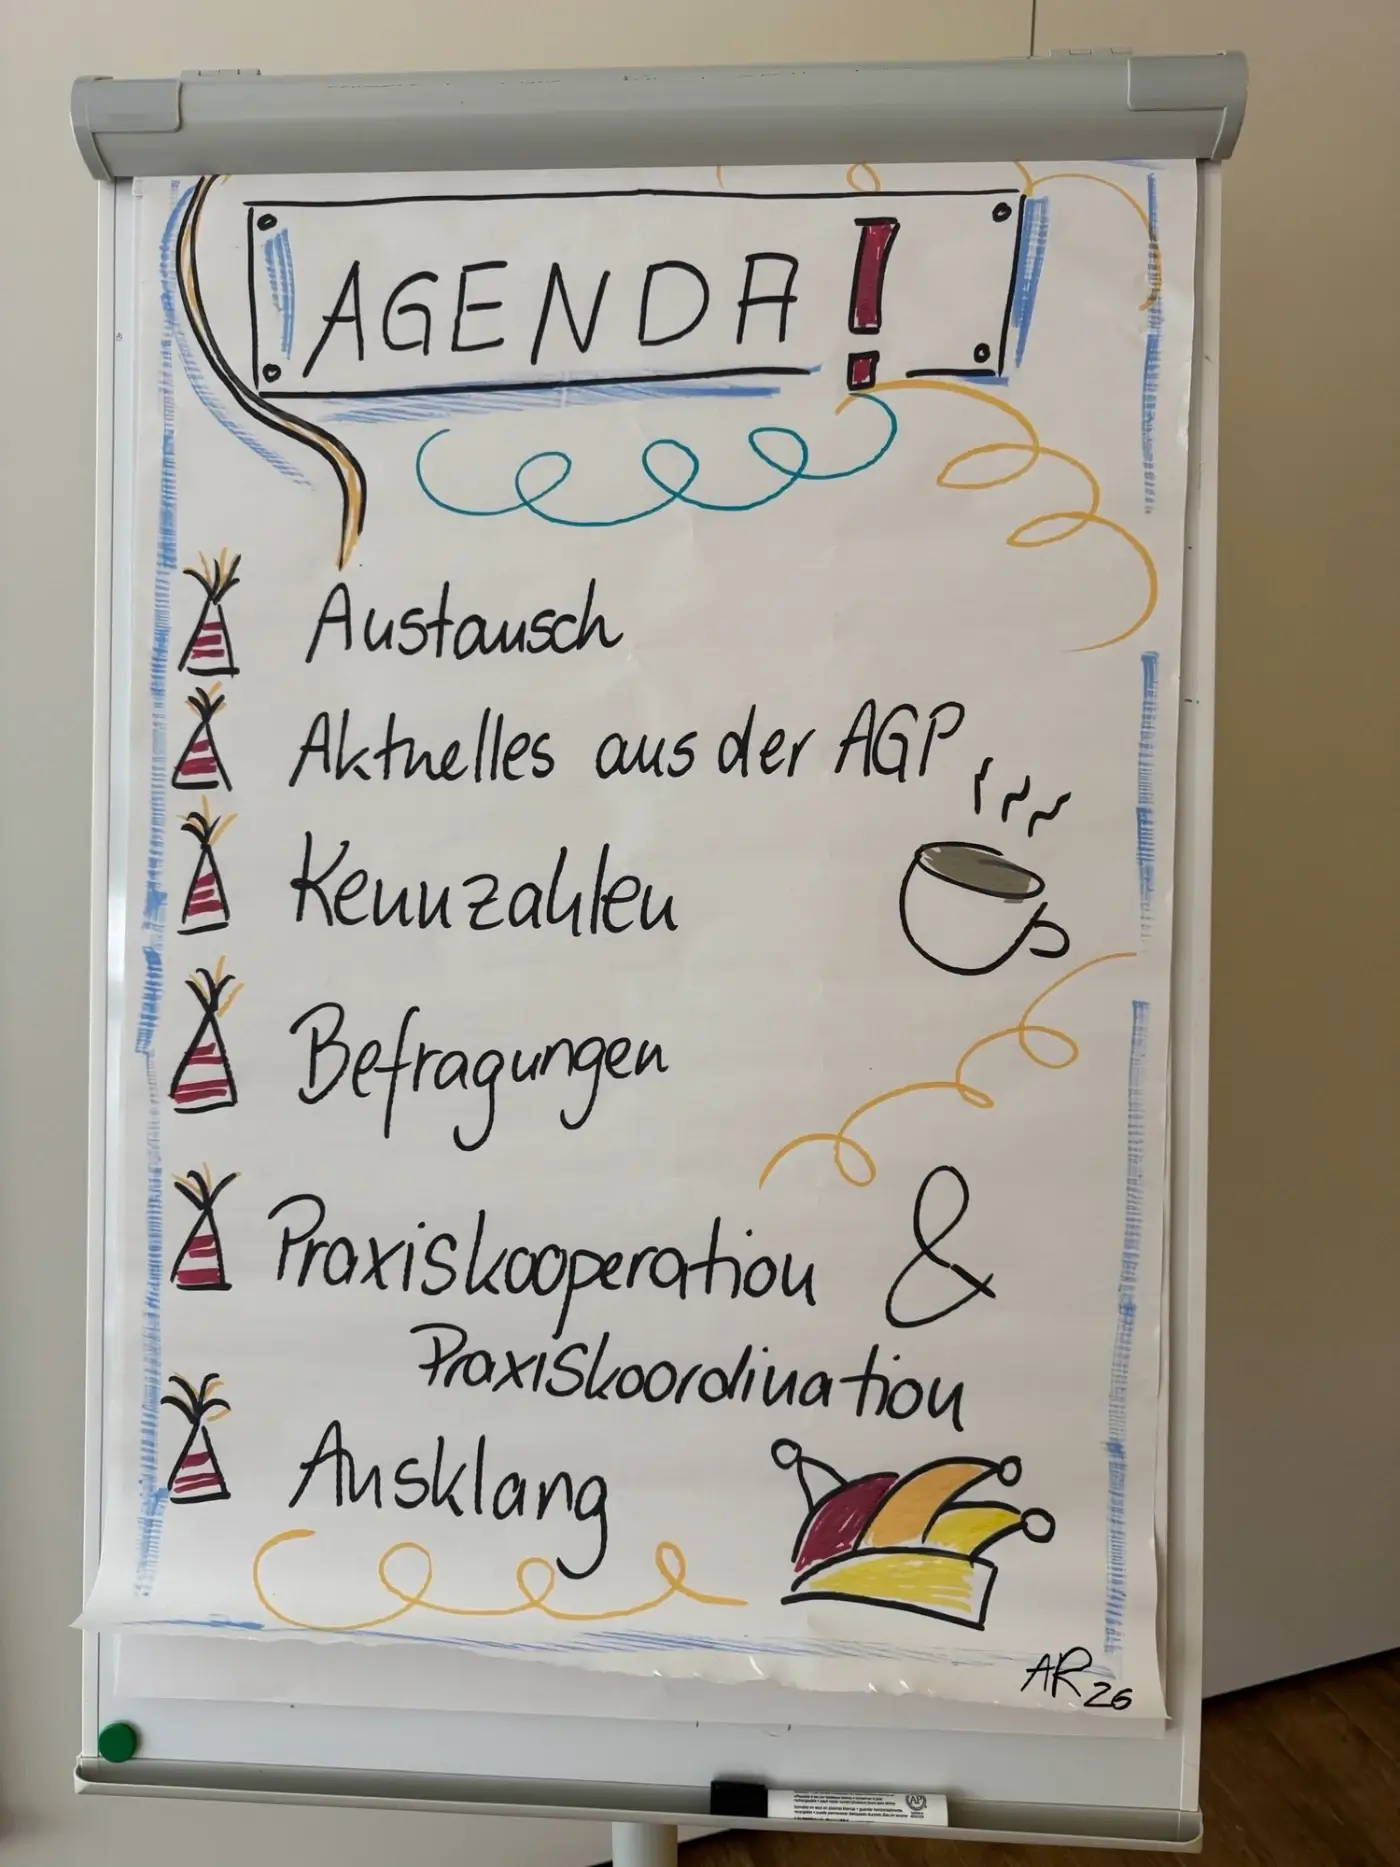 AGENDA!
Austausch
Aktuelles aus der AGP
Kennzahlen
Befragungen
Praxiskooperation &
Praxiskoordination
Ausklang
AR 26